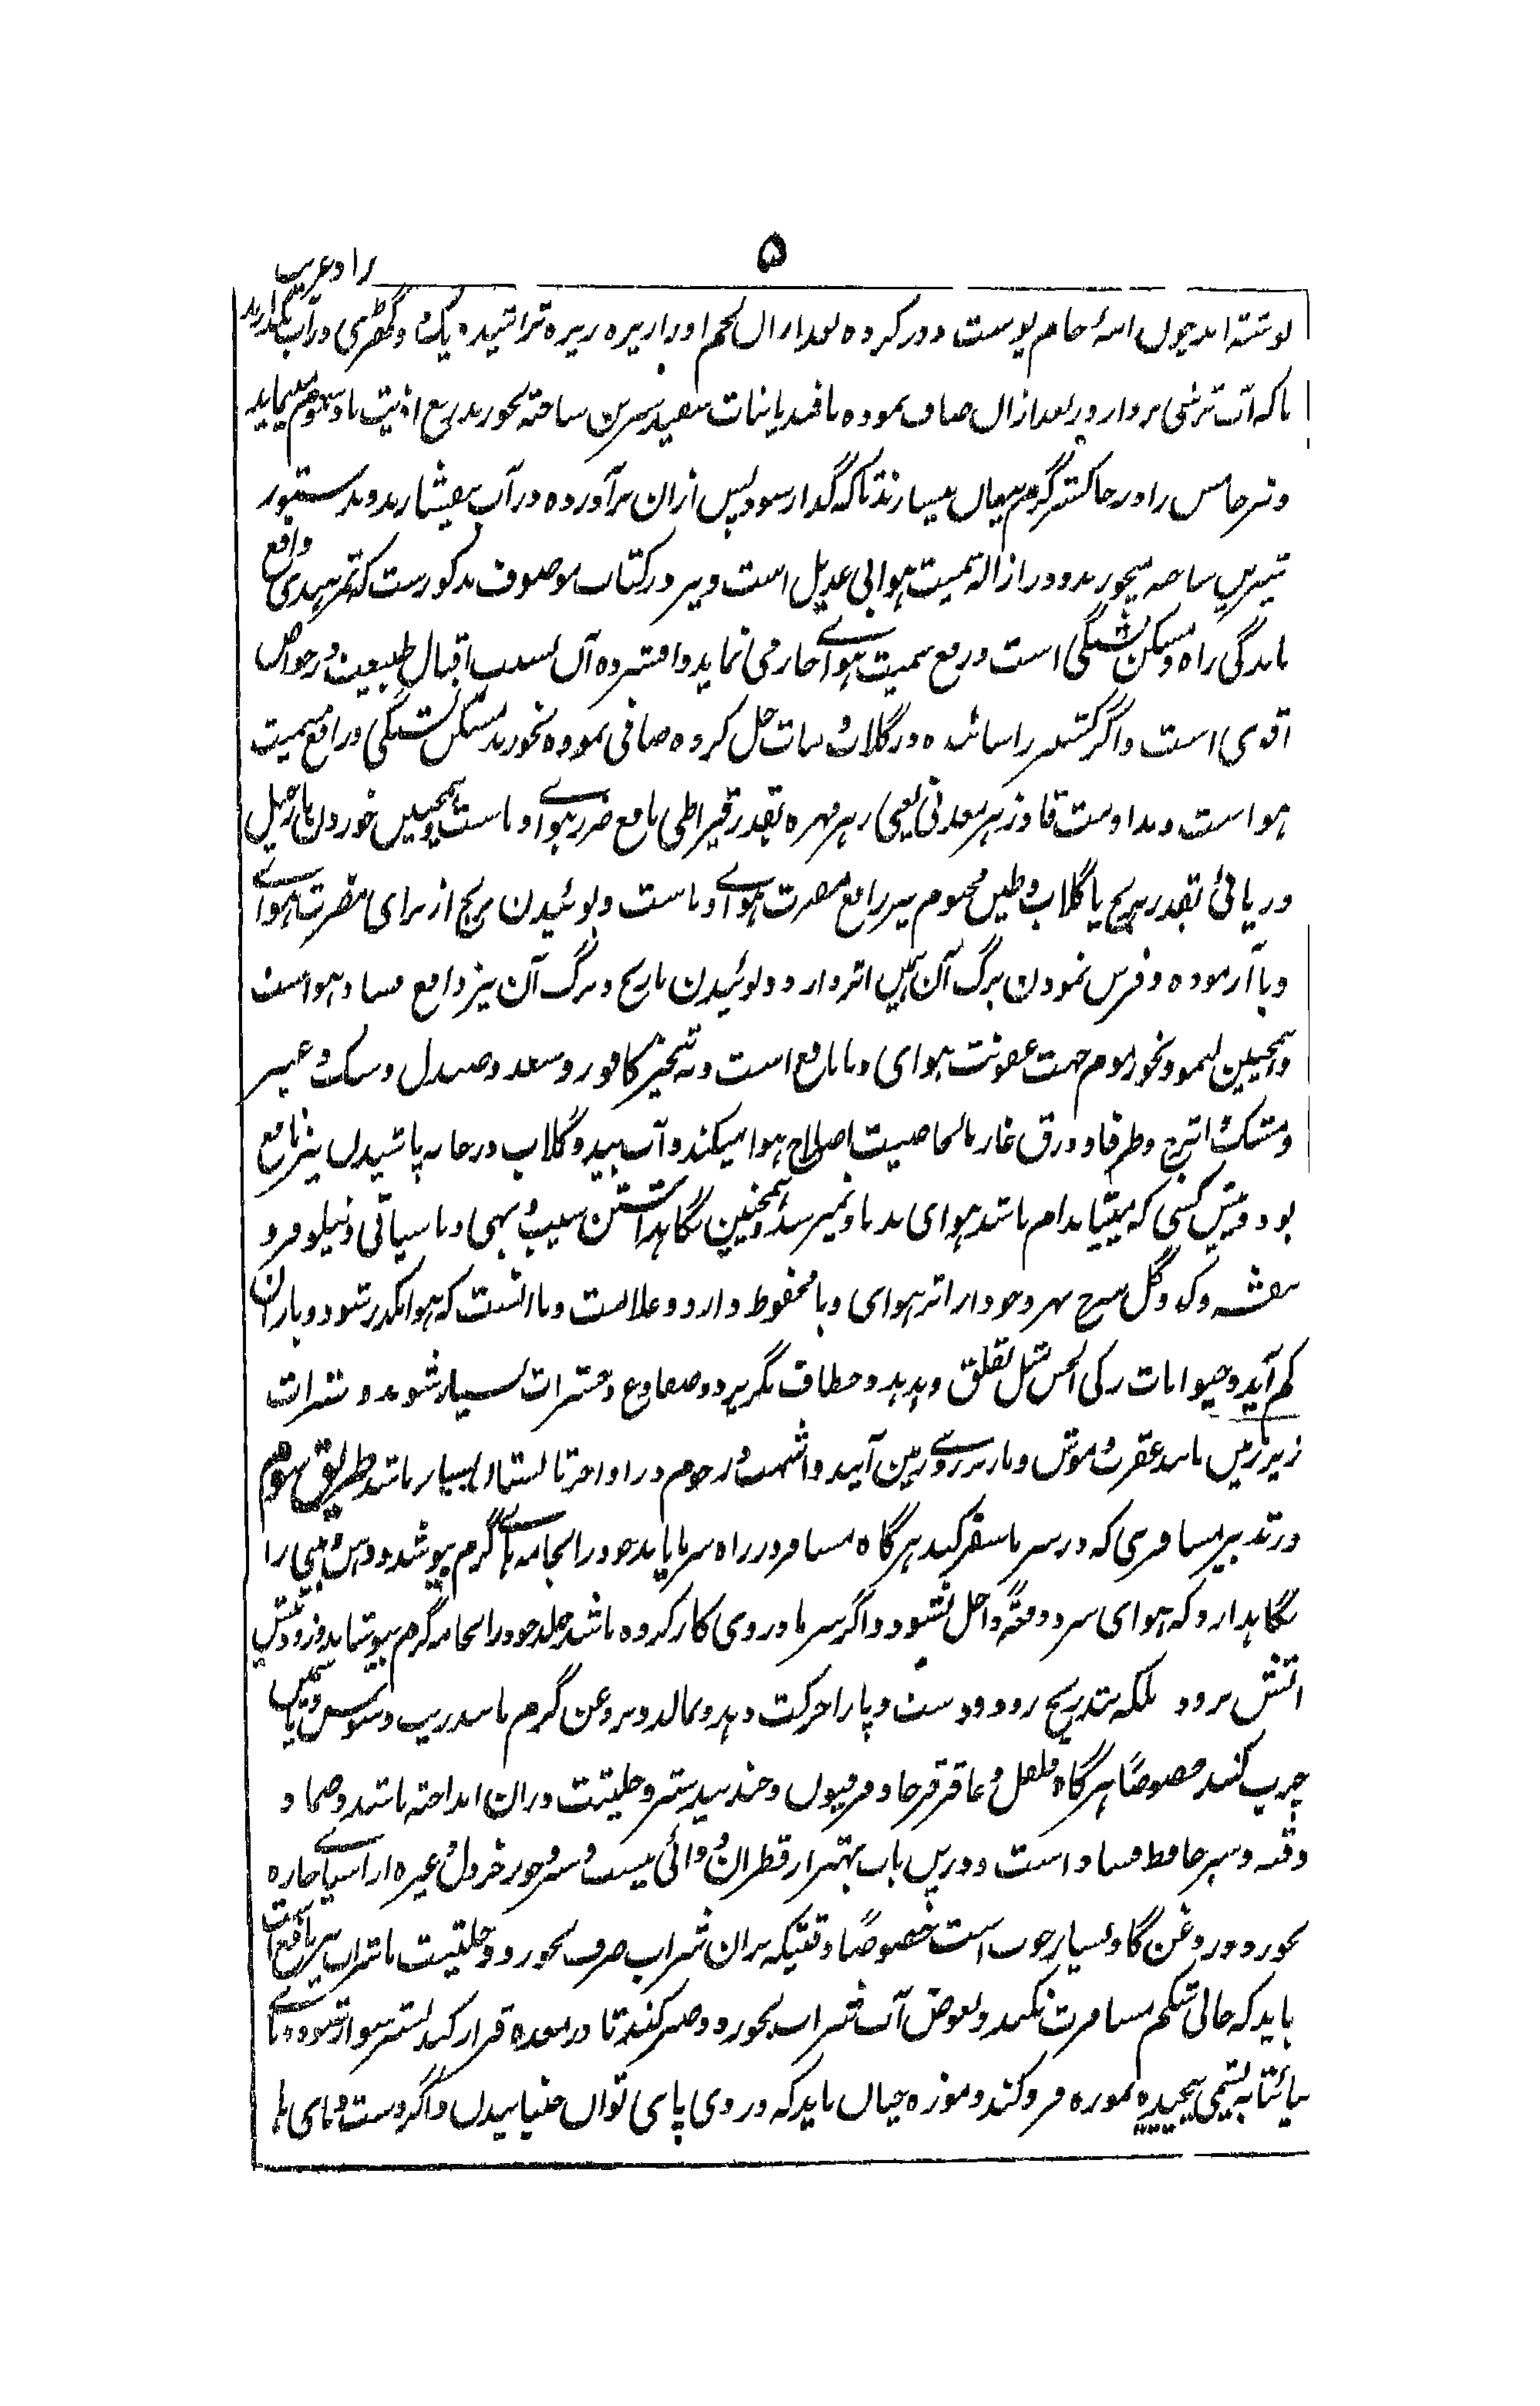 ۵
راد غریب
نوشته اند چون انبهٔ خام پوست دور کرده بعد ازان لحم اورا ریزه ریزه تراشیده یک دو گھڑی در آب بگذارند
تا که آب ترشی بردارد و بعد ازان صاف نموده با قند یا نبات سفید شیرین ساخته بخورند رفع اذیت باد سموم مینماید
و نیز خامش را در خاکستر گرم پنهان میسازند تا که گداز شود پس ازان برآورده در آب بیفشارند و بدستور
شیرین ساخته میخورند و در ازاله سمیت هوا بی عدیل است و نیز در کتاب موصوف مذکورست که تمر هندی دافع
ماندگی راه و مسکن تشنگی است و رفع سمیت هوای حار می نماید و افشرده آن بسبب اقبال طبیعت و خواص
اقوی است و اگر کشنیز را سائیده در گلاب و نبات حل کرده صافی نموده بخورند مسکن تشنگی و رافع سمیت
هوا است و مداومت فادزهر معدنی یعنی زهر مهره بقدر قیراطی نافع ضرر هوای وباست و همچنین خوردن نارجیل
دریائی بقدر برنج با گلاب و طین مختوم نیز رافع مضرت هوای وباست و بوئیدن ترنج از برای مضرت هوای
وبا آزموده و فرش نمودن برگ آن همین اثر دارد و بوئیدن نارنج و برگ آن نیز دافع فساد هواست
و همچنین لیمو و بخور موم جهت عفونت هوای وبا نافع است و تبخیر کافور و سعد و صندل و سک و عنبر
و مشک و اترج و طرفا و ورق غار بالخاصیت اصلاح هوا میکند و آب بید و گلاب در خانه پاشیدن نیز نافع
بود و پیش کسی که مشک مدام باشد هوای بد باو نمیرسد و همچنین نگاهداشتن سیب و بهی و ناسپاتی و نیلوفر و
بنفشه و گل سرخ نزد خود از اثر هوای وبا محفوظ دارد و علامت وبا آنست که هوا مکدر شود و باران
کم آید و حیوانات زکی الحس مثل لقلق و هدهد و خطاف بگریزد و ضفادع و حشرات بسیار شوند و حشرات
زیرزمین مانند عقرب و موش و مار بر روی زمین آیند و شهب و رجوم در اواخر تابستان بسیار باشد طریق سوم
در تدبیر مسافری که در سرما سفر کند هرگاه مسافر در راه سرما یابد خود را بجامه های گرم بپوشد و دهن و بینی را
نگاهدارد که هوای سرد دفعةً داخل نشود و اگر سرما در وی کار کرده باشد جلد خود را بجامه گرم بپوشاند و زود پیش
آتش نرود بلکه بتدریج رود و دست و پا را حرکت دهد و بمالد و بروغن گرم مانند زیت و سوسن و یاسمین
چرب کنند خصوصاً هرگاه فلفل و عاقرقرحا و فرفیون و جندبیدستر و حلتیت دران انداخته باشند و ضماد
قنه و سیر حافظ فساد است و درین باب بهتر از قطران دوائی نیست و سیر و جوز و خردل و غیره از اشیای حاره
بخورد و روغن گاو بسیار خوب است خصوصاً وقتیکه بران شراب صرف بخورد و حلتیت با شراب نیز نافع است
باید که خالی شکم مسافرت نکند و بعوض آب شراب بخورد و صبر کند تا در معده قرار کند پستر سوار شود و
پایتابه پشمی پیچیده موزه فرو کند و موزه چنان باید که در وی پای توان جنبانیدن و اگر دست و پای را